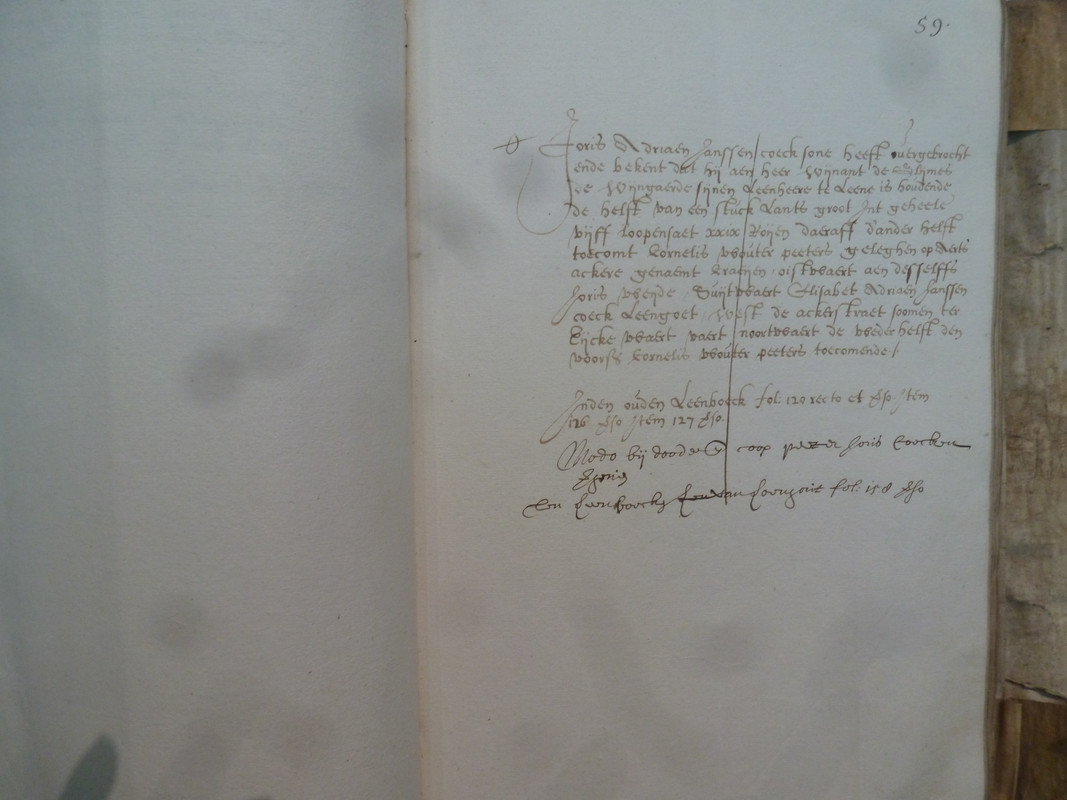 59.
Joris Adriaen Janssen coeck sone heeft overgebrocht
ende bekent dat hij aen heer Wijnant de
de Wijngaerde sijnen Leenheere te Leene is houdende
de helft van een stuck Lants groot Int geheele
vijff loopensaet xxix Roijen daeraff d'ander helft
toecomt Cornelis Wouter peeters geleghen op Aerts
ackere genaemt oistwaert aen desselffs
Joris weijde Suijtwaert Elisabet Adriaen Janssen
coeck Leengoet West de ackerstraet soomen ter
Eijcke waert vaert noortwaert de wederhelft den
voors Cornelis Wouter peeters toecomende /.
Inden ouden Leenboeck fol. 120 recto et vso. Item
126 vso Item 127 vso.
Modo bij coop peeter Joris Coecken
Leenboeck van fol: 158 vso